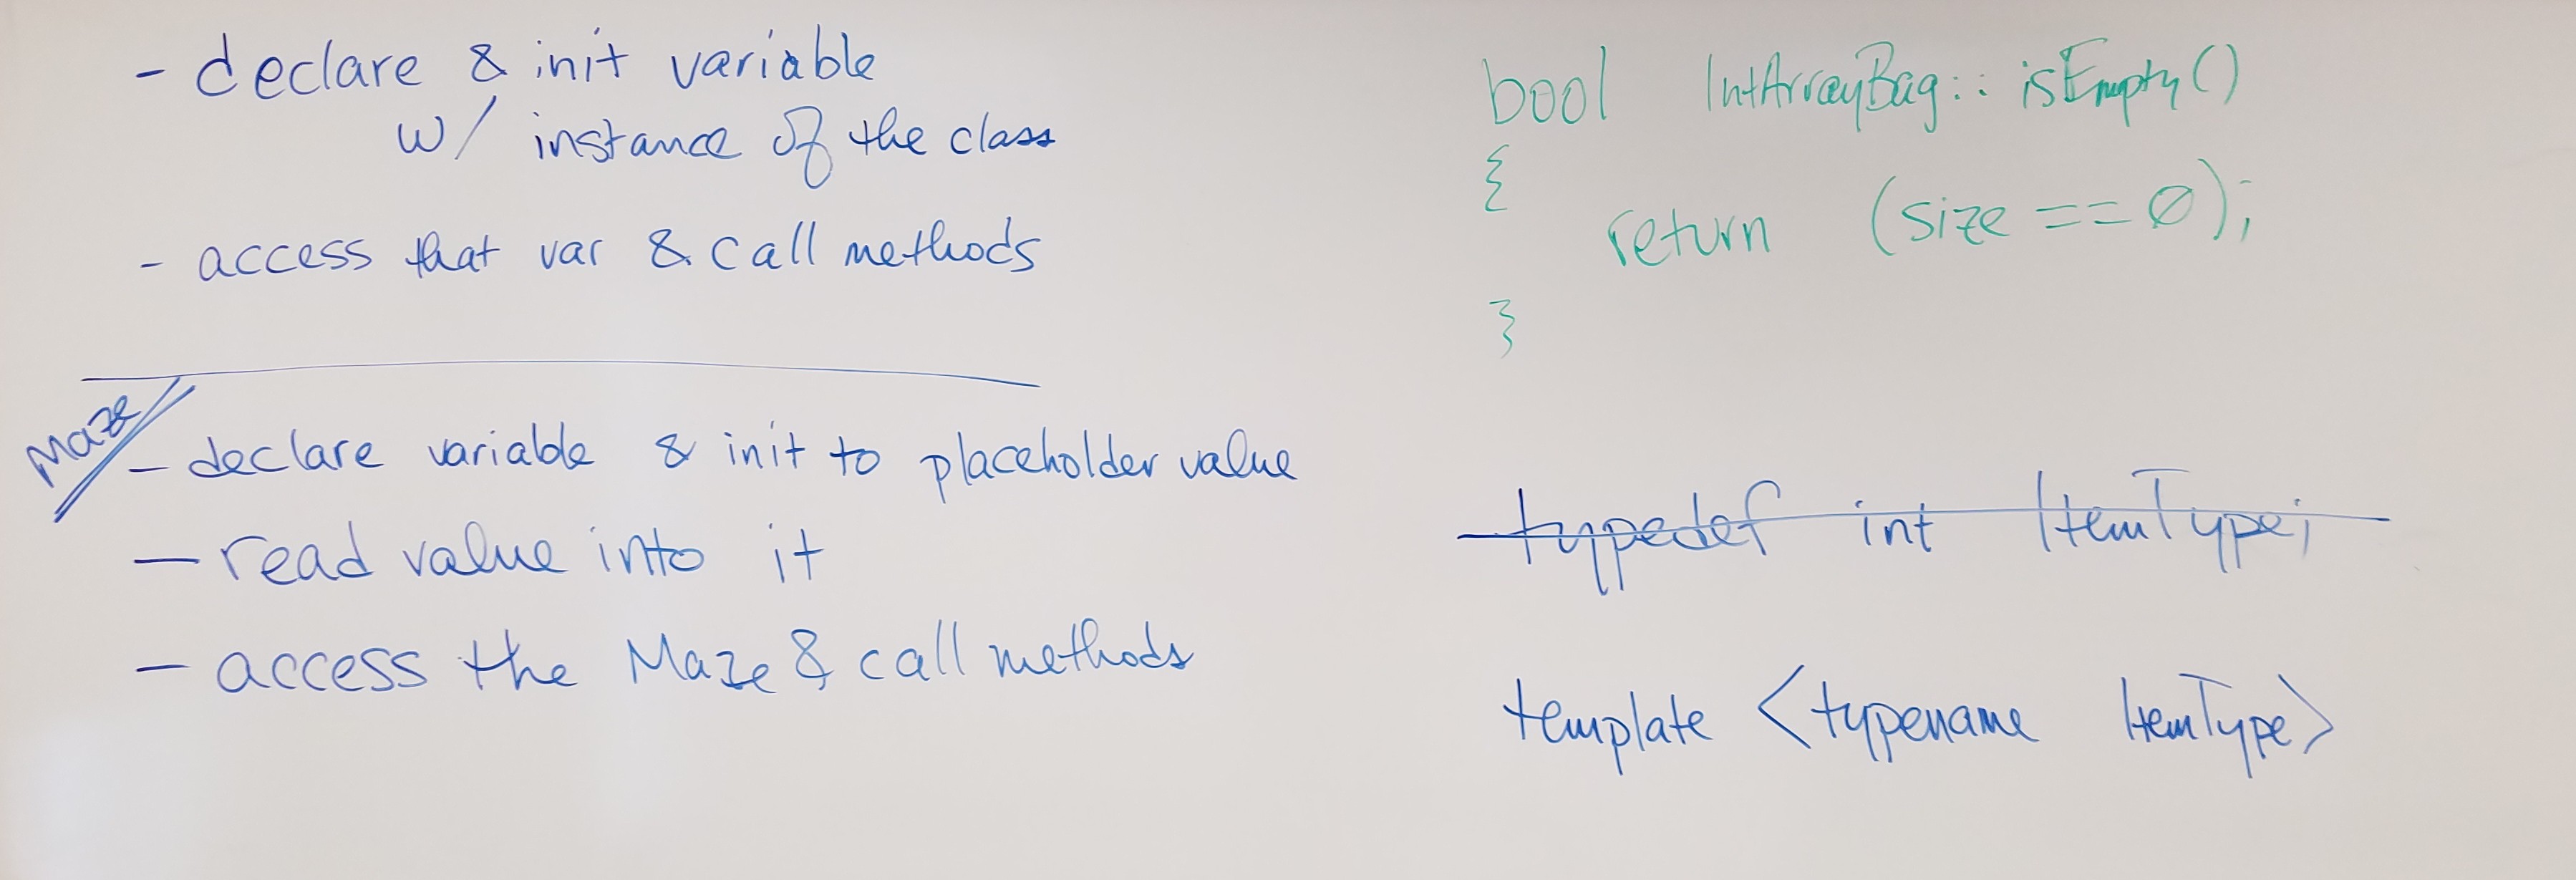 - declare & init variable
w/ instance of the class
- access that var & call methods
Maze
- declare variable & init to placeholder value
- read value into it
- access the Maze & call methods
bool IntArrayBag::isEmpty()
{
return (size == 0);
}
typedef int ItemType;
template <typename ItemType>